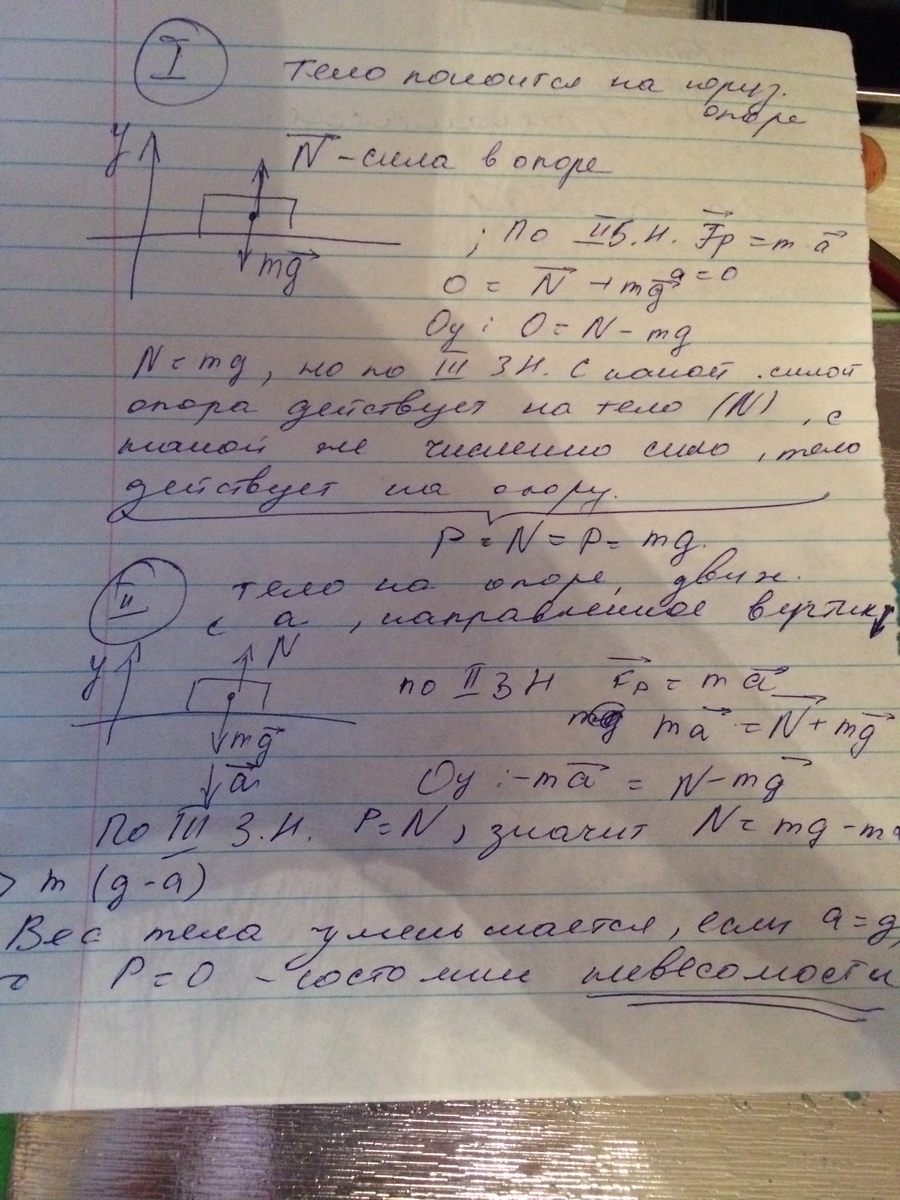 I
Тело покоится на гориз.
опоре
y
N - сила в опоре
; По II З.Н. Fр = m a
mg
a = 0
0 = N + mg
Oy: 0 = N - mg
N = mg, но по III ЗН. С какой силой
опора действует на тело (N), с
такой же численно сило, тело
действует на опору.
P = N = P = mg.
II
тело на опоре, движ.
с a, направленное вертик
y
N
по II З Н Fр = m a
ma = N + mg
mg
a
Oy: -ma = N - mg
По III З.Н. P = N, значит N = mg - ma
m (g - a)
Вес тела уменьшается, если a = g,
то P = 0 - состоянии невесомости